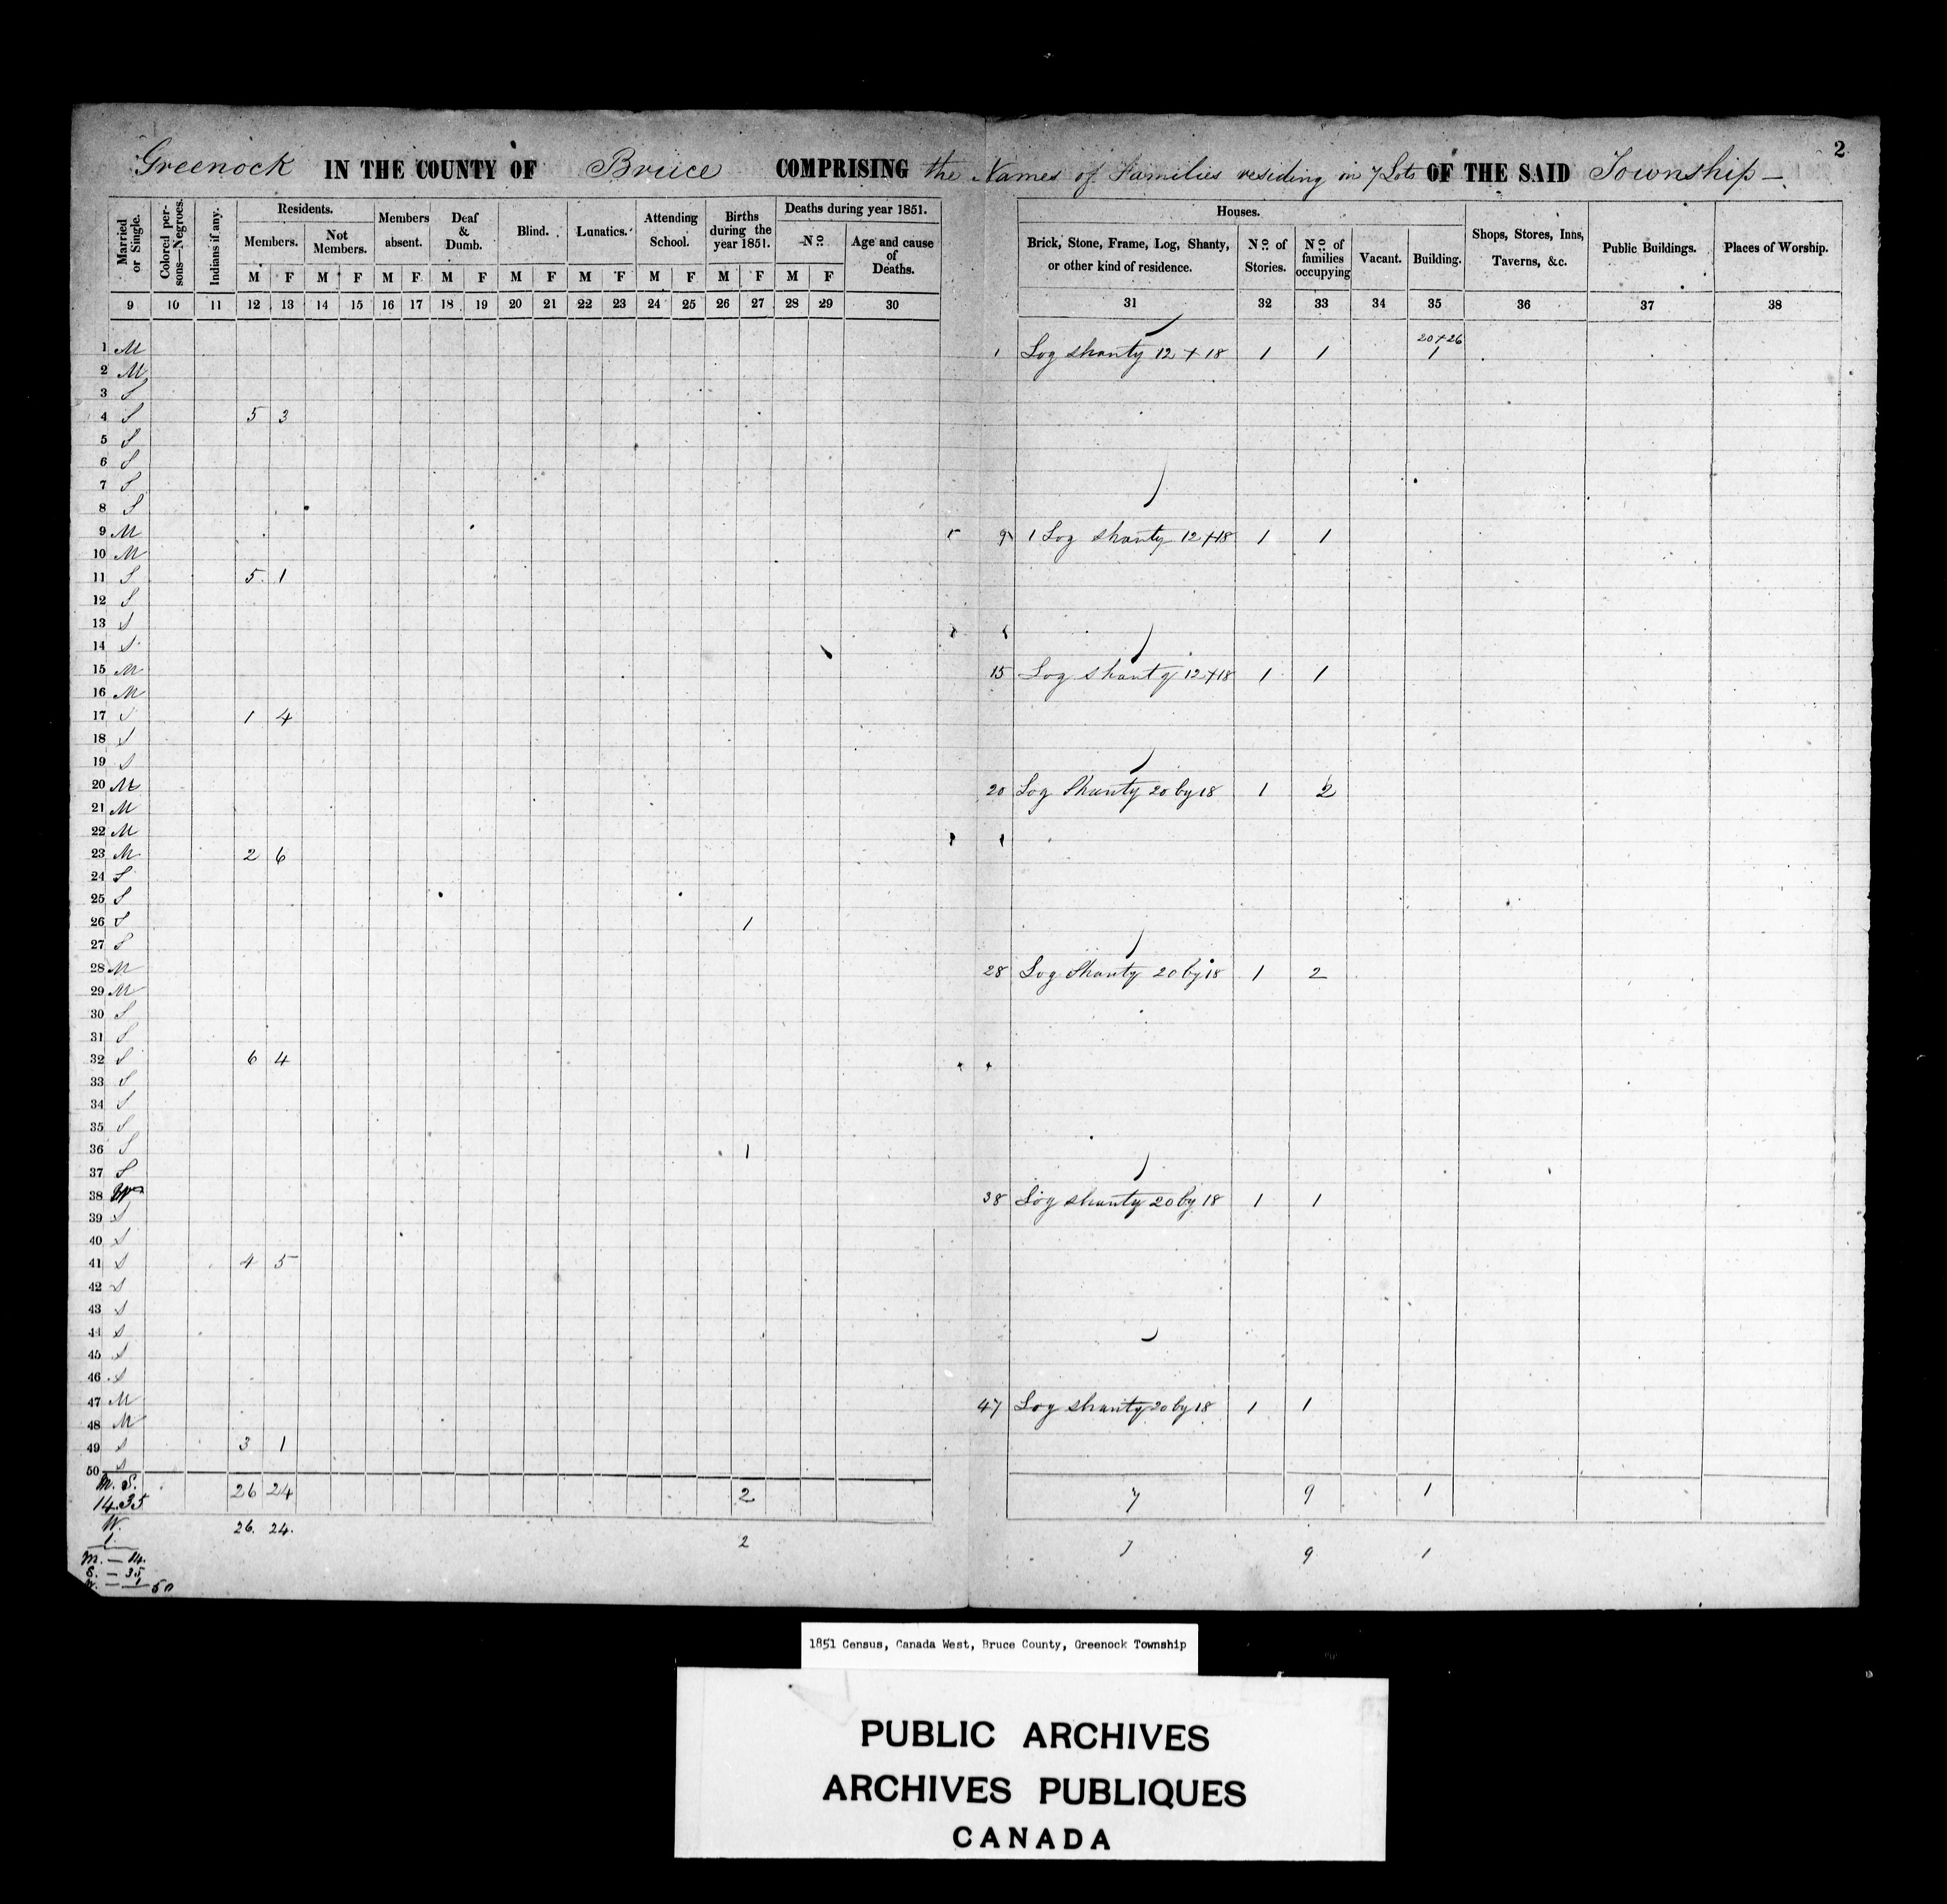 2
Greenock IN THE COUNTY OF Bruce COMPRISING the Names of Families residing in 7 Lots OF THE SAID Township —
Married or Single. Colored persons—Negroes. Indians if any. Residents. Members absent. Deaf & Dumb. Blind. Lunatics. Attending School. Births during the year 1851. Deaths during year 1851. Houses. Shops, Stores, Inns, Taverns, &c. Public Buildings. Places of Worship.
Members. Not Members. No Age and cause of Deaths. Brick, Stone, Frame, Log, Shanty, or other kind of residence. No. of Stories. No of families occupying Vacant. Building.
M F M F M F M F M F M F M F M F M F
9 10 11 12 13 14 15 16 17 18 19 20 21 22 23 24 25 26 27 28 29 30 31 32 33 34 35 36 37 38
20+26
1 M 1 Log shanty 12 + 18 1 1 1
2 M
3 S
4 S 5 3
5 S
6 S
7 S
8 S
9 M 9 1 Log shanty 12+18 1 1
10 M
11 S 5 1
12 S
13 S
14 S
15 M 15 Log shanty 12+18 1 1
16 M
17 S 1 4
18 S
19 S
20 M 20 Log Shanty 20 by 18 1 2
21 M
22 M
23 M 2 6
24 S
25 S
26 S 1
27 S
28 M 28 Log Shanty 20 by 18 1 2
29 M
30 S
31 S
32 S 6 4
33 S
34 S
35 S
36 S 1
37 S
38 W 38 Log shanty 20 by 18 1 1
39 S
40 S
41 S 4 5
42 S
43 S
44 S
45 S
46 S
47 M 47 Log shanty 20 by 18 1 1
48 M
49 S 3 1
50 S
M. S.
14.35 26 24 2 7 9 1
W. 26. 24. 2 7 9 1
1
M. — 14.
S. — 35
W. — 1 50
1851 Census, Canada West, Bruce County, Greenock Township
PUBLIC ARCHIVES
ARCHIVES PUBLIQUES
CANADA